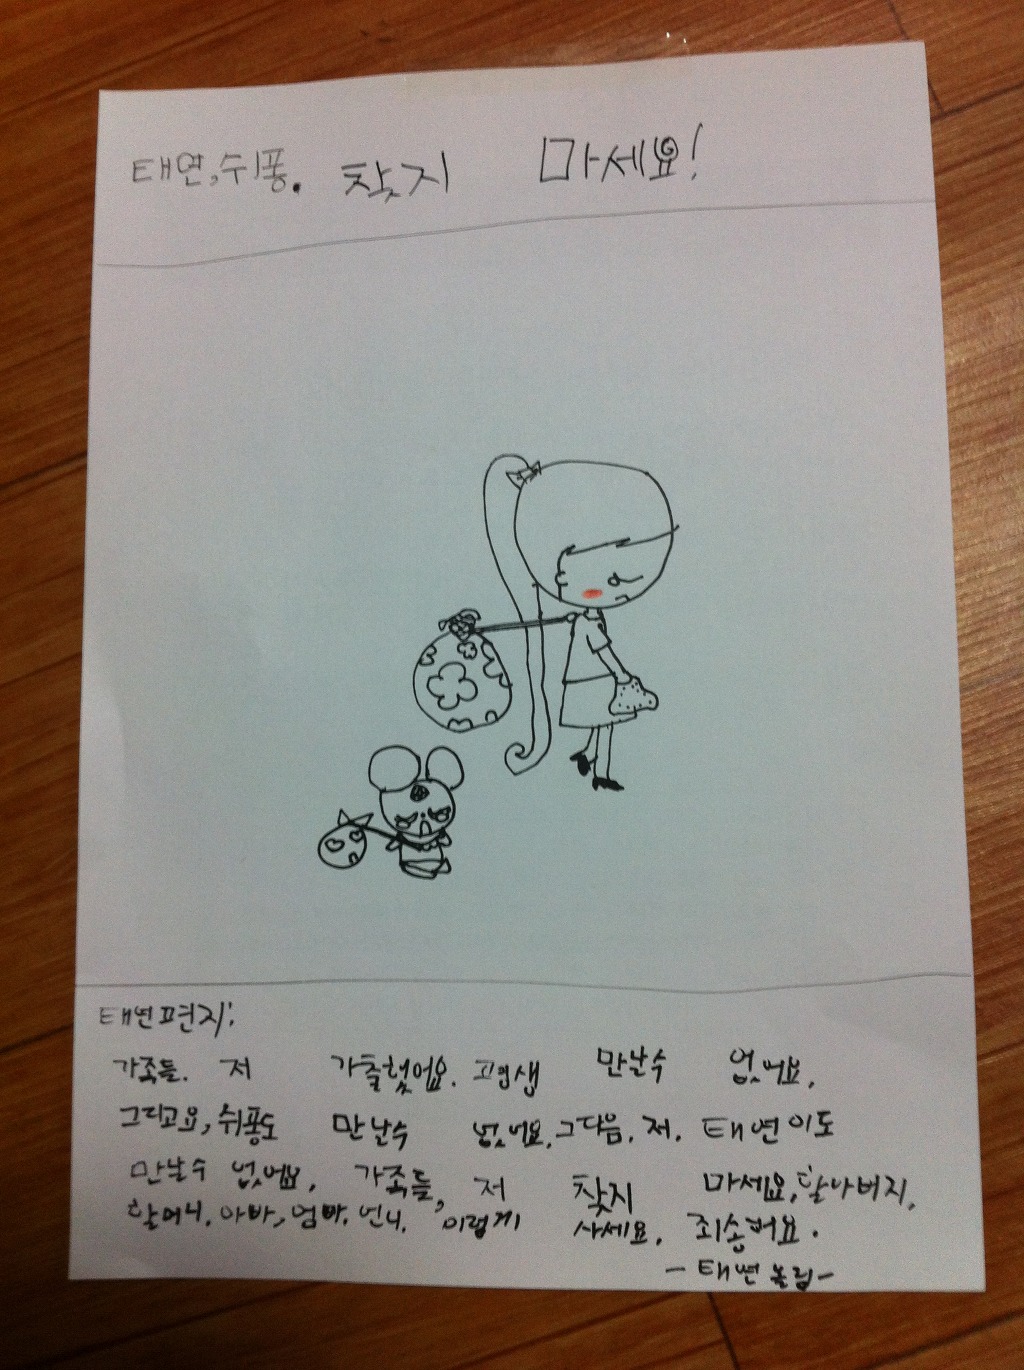 태연,쉬퐁. 찾지 마세요!
태연편지:
가족들. 저 가출했어요. 평생 만날수 없어요.
그리고요, 쉬퐁도 만날수 없어요. 그다음. 저. 태연이도
만날수 없어요, 가족들, 저 찾지 마세요, 할아버지,
할머니. 아빠, 엄마. 언니. 이렇게 사세요. 죄송해요.
- 태연 올림 -